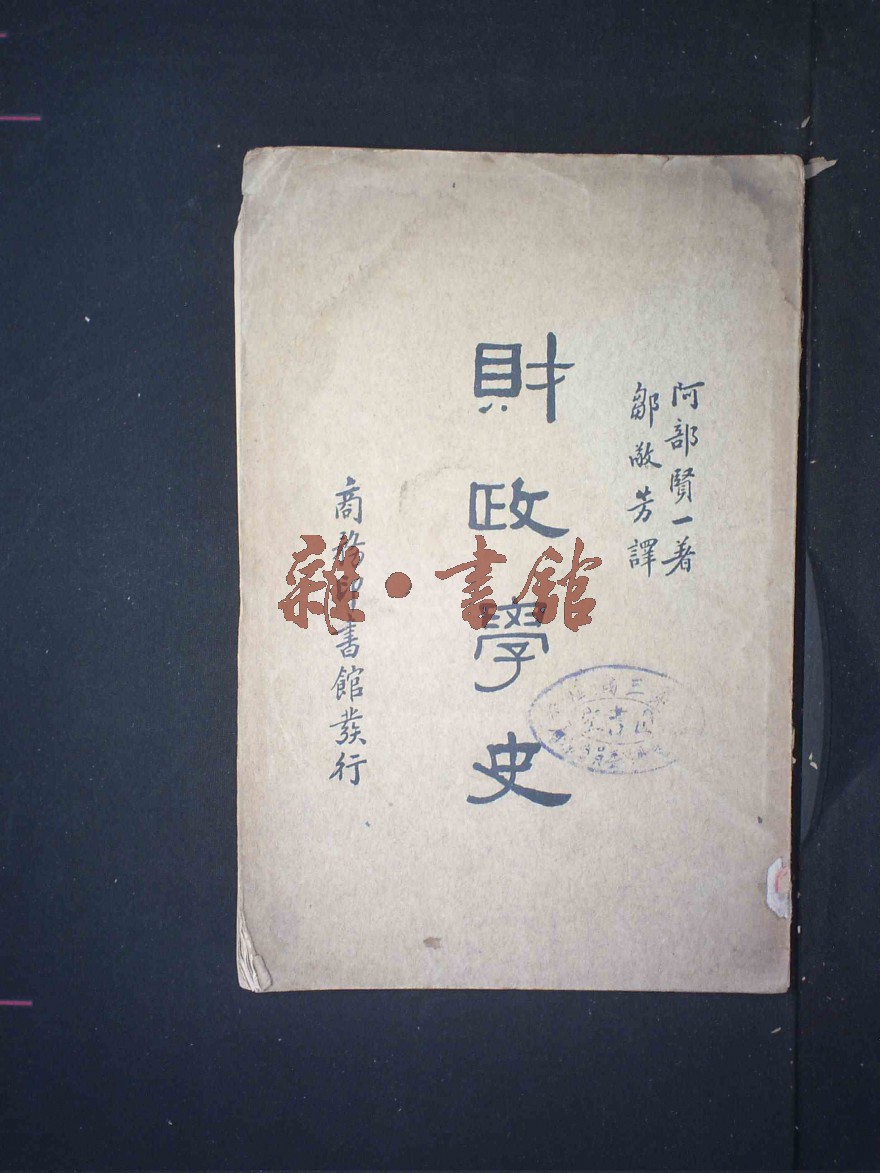 阿部賢一著
鄒敬芳譯
財政學史
商務印書館發行
雜·書館